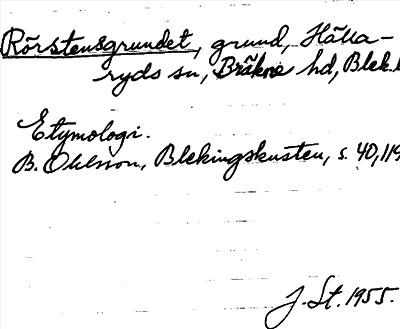 Rörstensgrundet, grund, Hälla-
ryds sn, Bräkne hd, Blek.l
Etymologi.
B. Ohlsson, Blekingskusten, s. 40, 119
J. St. 1955.